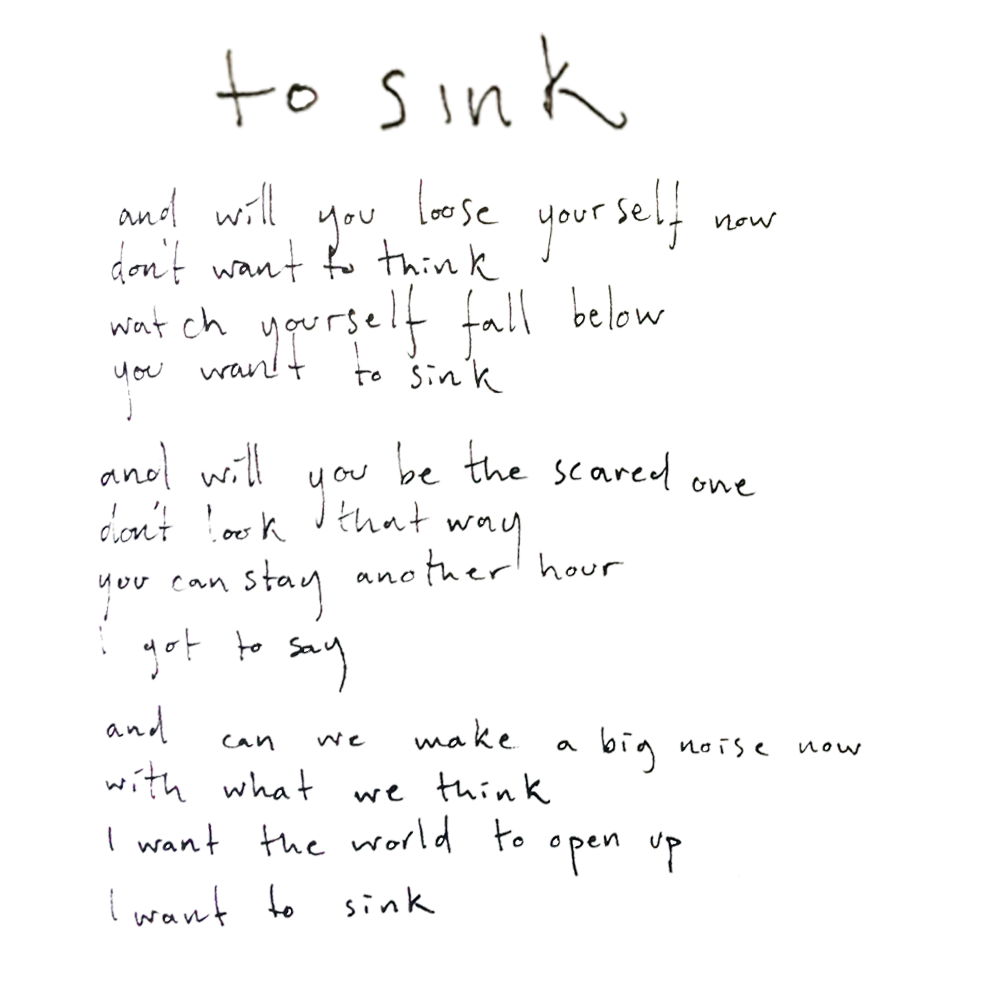 to sink
and will you loose yourself now
don't want to think
watch yourself fall below
you want to sink
and will you be the scared one
don't look that way
you can stay another hour
i got to say
and can we make a big noise now
with what we think
I want the world to open up
I want to sink